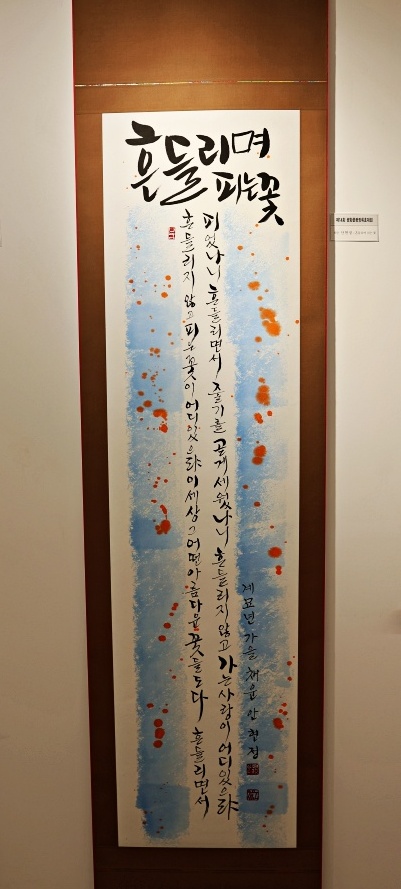 흔들리며
피는 꽃
흔들리지 않고 피는 꽃이 어디 있으랴 이 세상 그 어떤 아름다운 꽃들도 다 흔들리면서
피었나니 흔들리면서 줄기를 곧게 세웠나니 흔들리지 않고 가는 사랑이 어디 있으랴
계묘년 가을 채윤 안현정